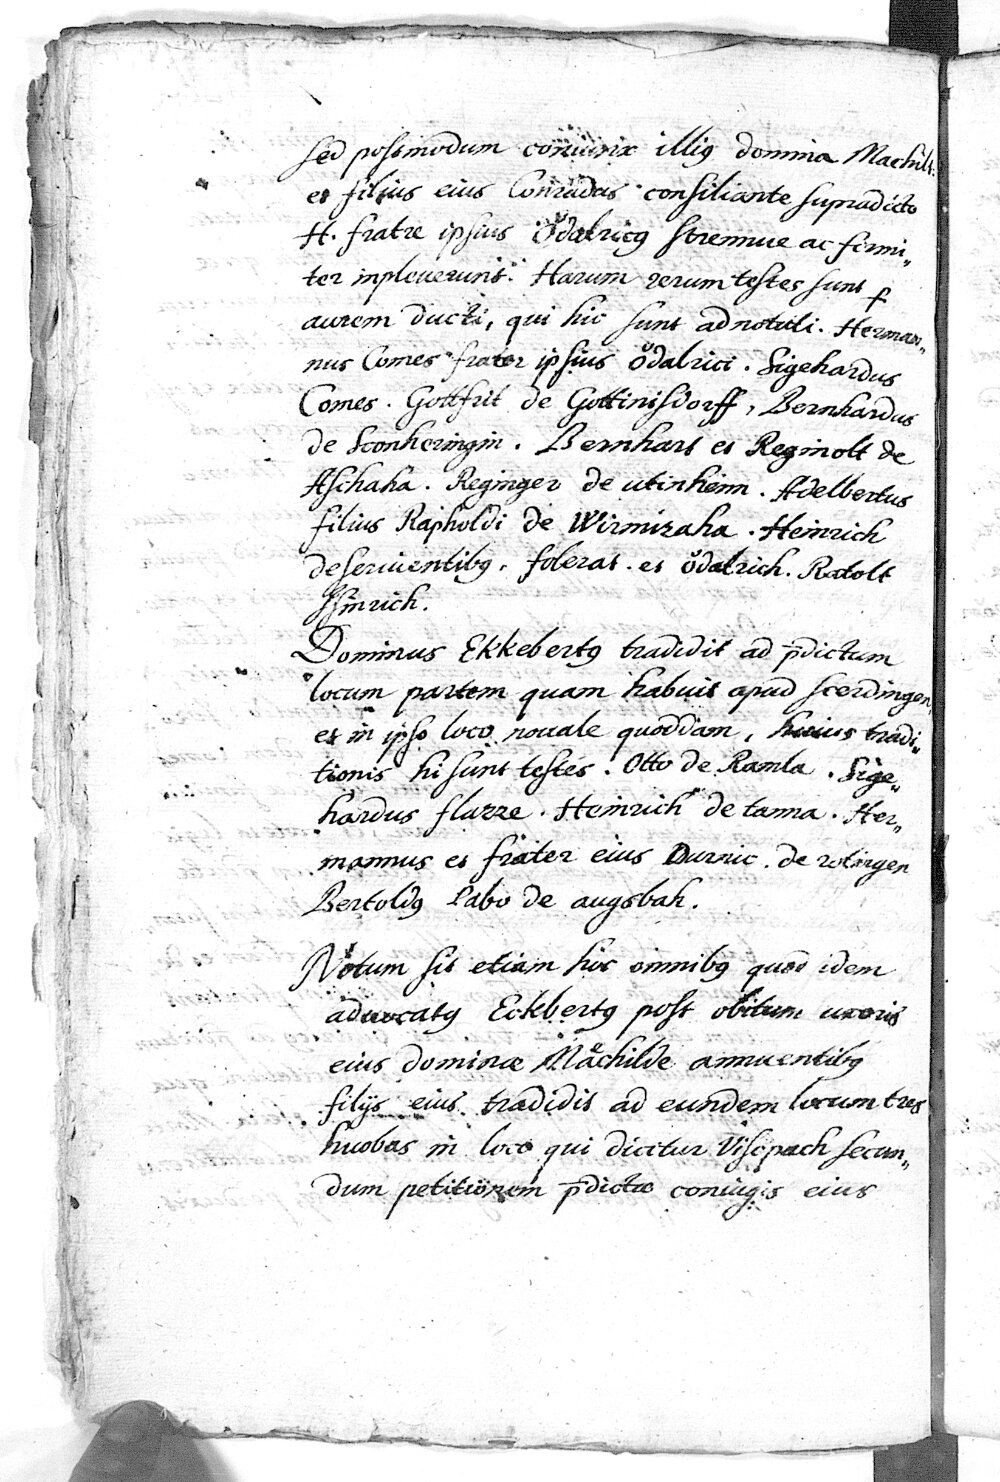 Sed postmodum coniunx illig domina Machilt
et filius eius Conradus consiliante supradicto
H. fratre ipsius Ŏdalricg strenue ac firmi„
ter inpleverunt. Harum rerum testes sunt p
aurem ducti, qui hic sunt adnotati. Herman„
nus Comes frater ipsius ŏdalrici. Sigehardus
Comes. Gottfrit de Gottinisdorff, Bernhardus
de Sconheringin. Bernhart et Reginolt de
Aschaha. Reginger de utinheim. Adelbertus
filius Rapholdi de Wirmizaha. Heinrich
de servientibg. folerat. et ŏdalrich. Ratolt
Dominus Ekkebertg tradidit ad p̄dictum
locum partem quam habuit apud scerdingen,
et in ipso loco novale quoddam, huius tradi„
tionis hi sunt testes. Otto de Ramla. Sige„
hardus fluzze. Heinrich de tanna. Her„
mannus et frater eius Durnic. de rotingen
Bertoldg Pabo de augsbah.
Notum sit etiam hoc omnibg quod idem
advocatg Eckbertg post obitum uxoris
eius dominæ Mãchilde annuentibg
filijs eius tradidit ad eundem locum tres
huobas in loco qui dicitur Viscpach secun„
dum petitionem p̄dictæ coniugis eius